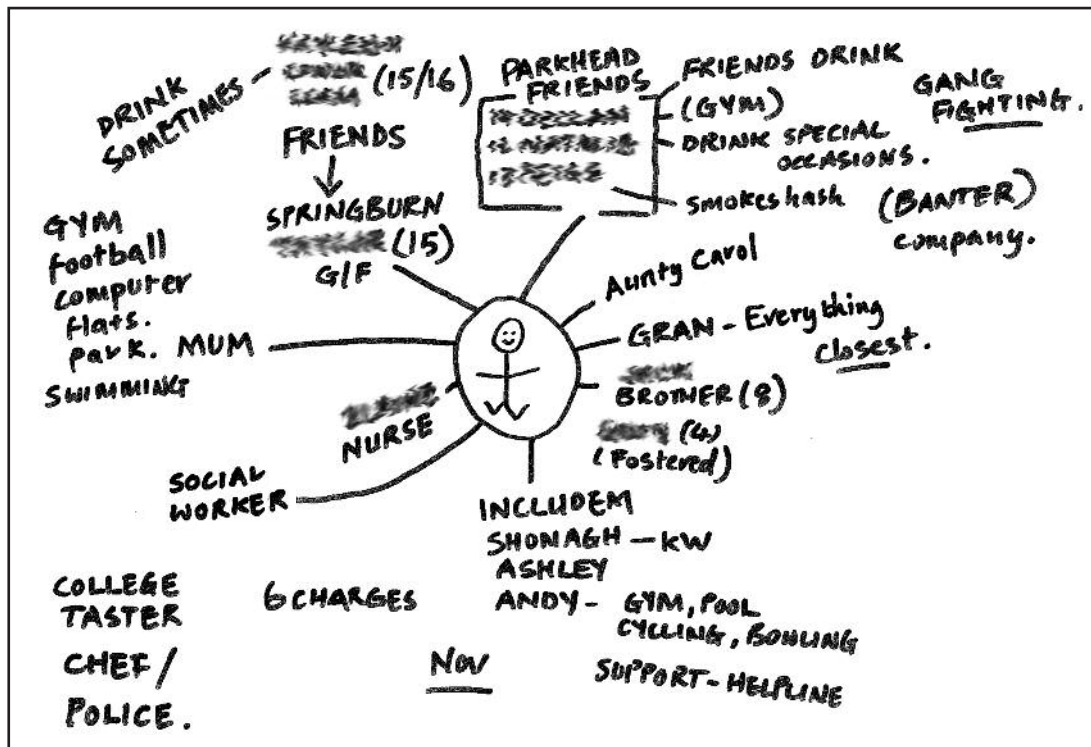 DRINK
SOMETIMES
(15/16)
FRIENDS
SPRINGBURN
(15)
G/F
PARKHEAD
FRIENDS
FRIENDS DRINK
(GYM)
DRINK SPECIAL
OCCASIONS.
smokes hash
GANG
FIGHTING.
(BANTER)
company.
GYM
football
computer
flats.
park.
SWIMMING
MUM
NURSE
SOCIAL
WORKER
Aunty Carol
GRAN - Everything
closest.
BROTHER (8)
(4)
(Fostered)
INCLUDEM
SHONAGH - KW
ASHLEY
ANDY - GYM, POOL
CYCLING, BOWLING
SUPPORT - HELPLINE
COLLEGE
TASTER
CHEF /
POLICE.
6 CHARGES
Nov